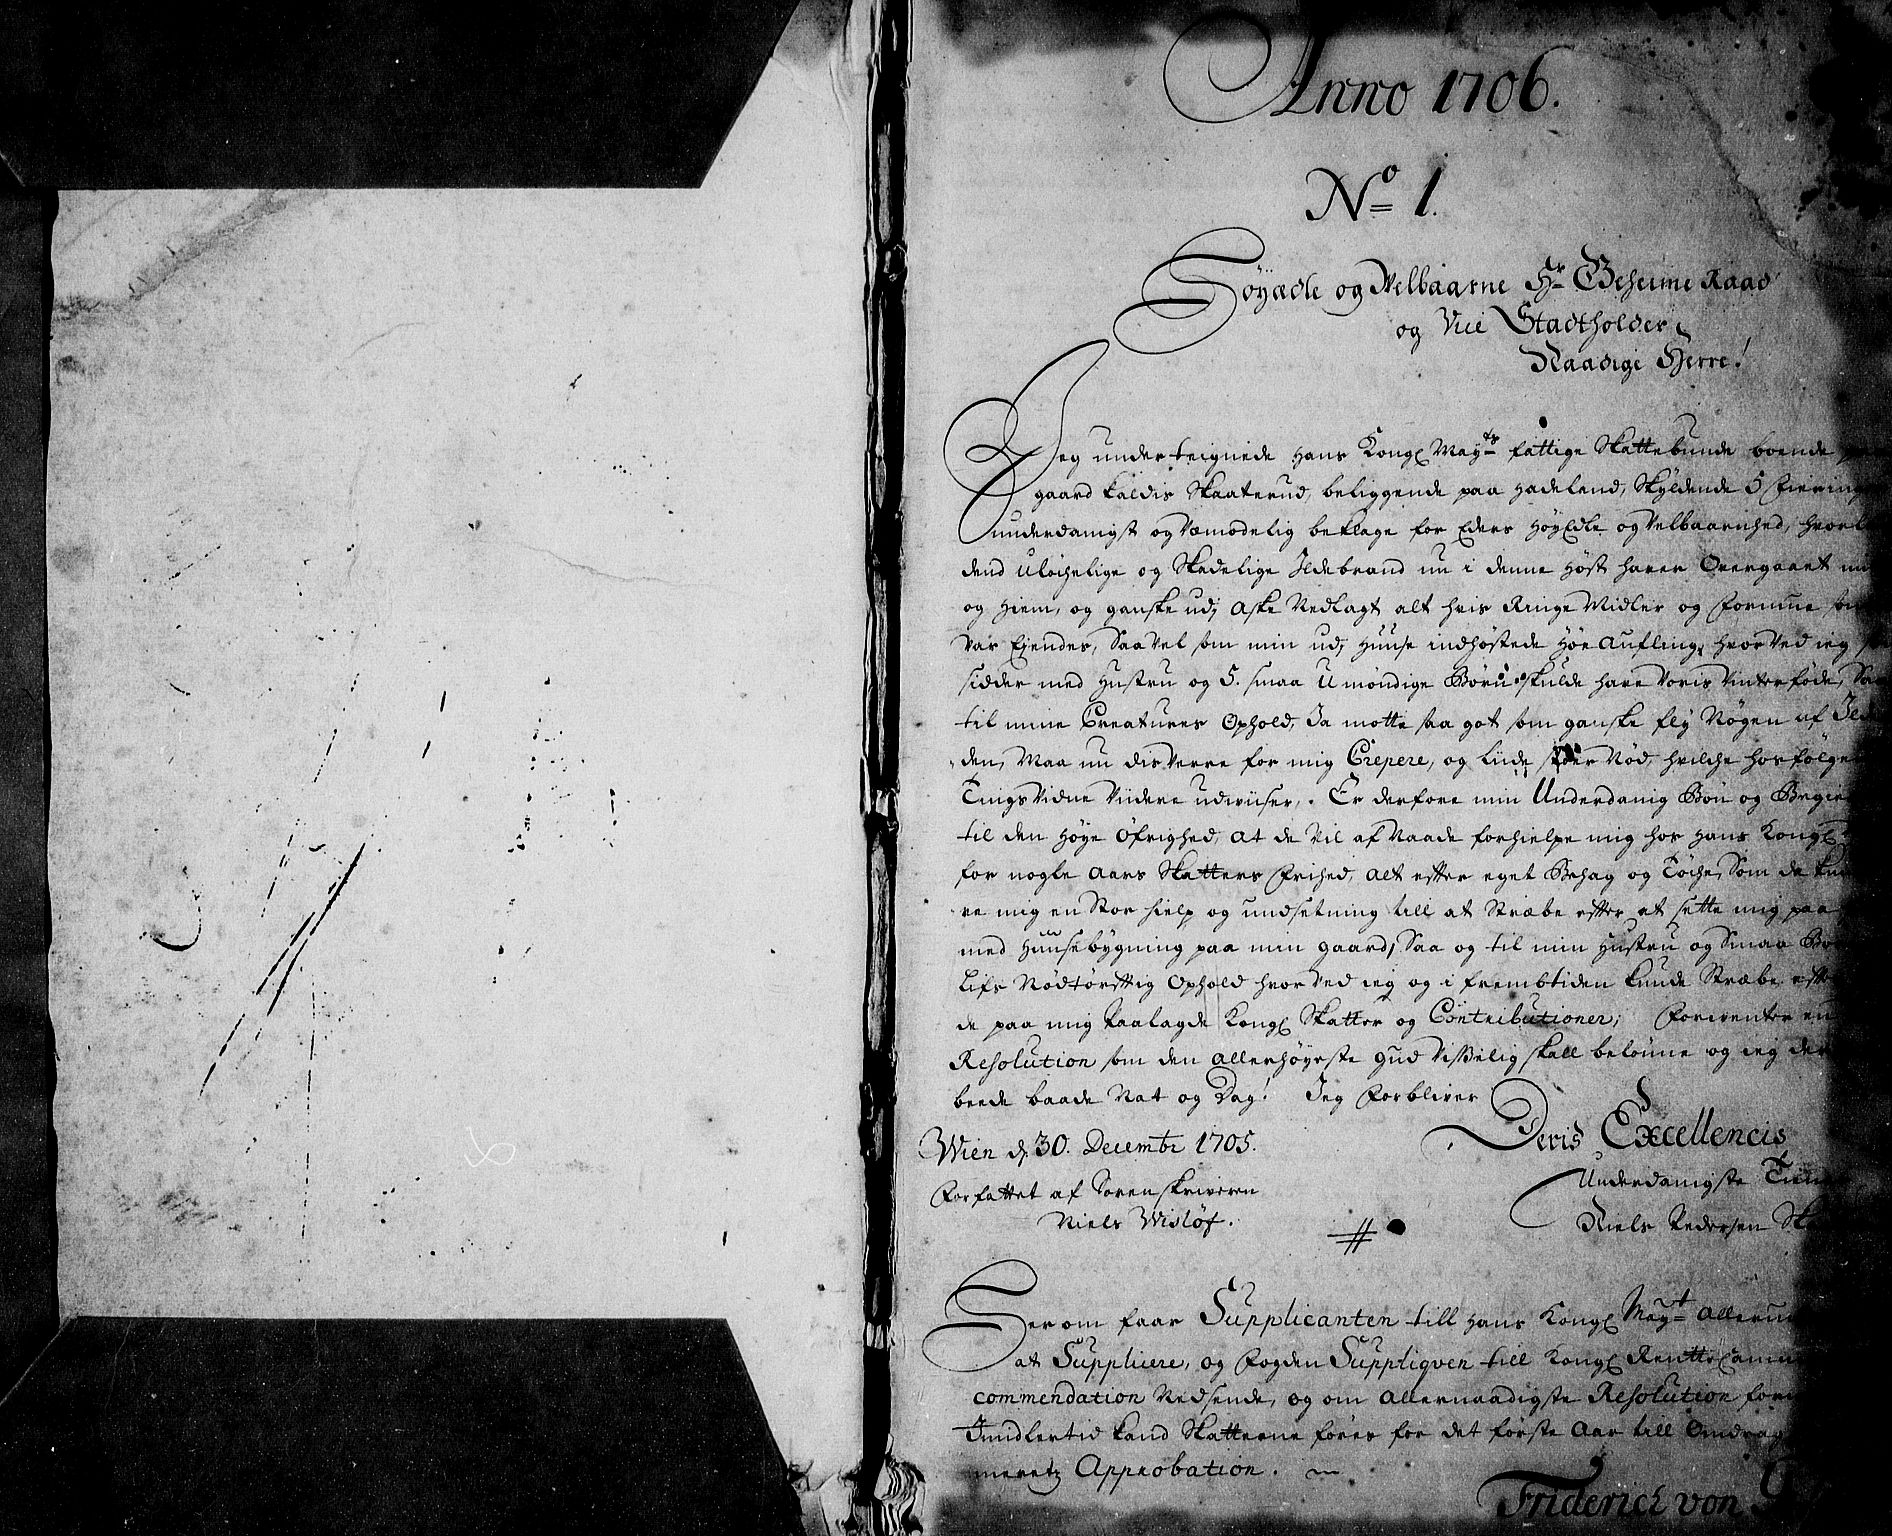 Anno 1706.
No 1.
Höÿædle og Velbaarne Hr Geheime Raad
og Vice Stadtholder,
Naadige Herre!
Jeg underteignede Hans Kongl Mayts fattige Skattebunde boende
gaard kaldis Skaaterud, beliggende paa Hadeland, Skÿldende 5 Fiering
underdanigst og Vemodelig beklage for Eders HöyEdle og Velbaarnhed,
dend Ulöchelige og Skadelige Ildebrand nu i denne Höst haver Overgaaet
og Hiem, og ganske udj Aske Nedlagt alt hvis Ringe Midler og Formue
var Ejendes, Saavel som min udj Huuse indhöstede Höe Aufling, hvorved ieg
sidder med Hustru og 5. smaa Umöndige Börn skulde have Voris Vinterföde,
til mine Creatures Ophold, Ja motte saa got som ganske fly Nögen af
den, Maa nu disverre for mig Crepere, og liide stoer Nöd, hvilche hosfölge
Tings Vidne Viidere udviiser,. Er derfore min Underdanig Bön og
til den Höye Öfrighed, at de Vil af Naade forhielpe mig hos Hans Kongl
for nogle Aars Skatters Frihed, alt efter eget Behag og Töche, Som
re mig en Stor hielp og undsetning till at Stræbe efter at sette mig paa
med Huusebÿgning paa min gaard, Saa og til min Hustru og Smaa
Lifs Nödtörfftig Ophold hvorved ieg og i frembtiden kunde Stræbe
de paa mig Paalagde Kongl Skatter og Contributioner; Forventer en
Resolution som den allerhöyeste gud Visselig skall belönne og ieg
beede baade Nat og Dag! Jeg Forbliver
Deris Excellencis
Wien d. 30. Decembr 1705.
Underdanigste
Forfattet af Sorenskriveren
Niels Wislöf.
Niels Pedersen
Herom faar Supplicanten till Hans Kongl Mayt
at Supplicere, og Fogden Suppliqven till Kongl
commendation Nedsende, og om allernaadigste Resolution
Imidlertid kand Skatterne föres for det förste Aar till
Approbation.
Friderich von